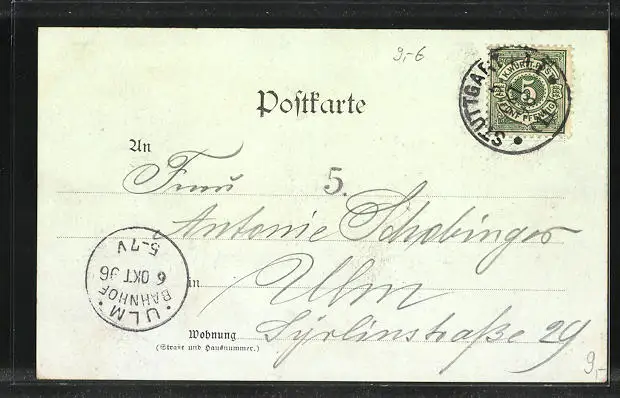 9.-6
Postkarte
STUTTGART
K. WÜRTT. POST
5
FÜNF PFENNIG
An
Frau
5.
Antonie Schabinger
in Ulm
Wohnung Syrlinstraße 29
(Straße und Hausnummer.)
ULM
BAHNHOF
6 OKT 96
5-7V
9,-